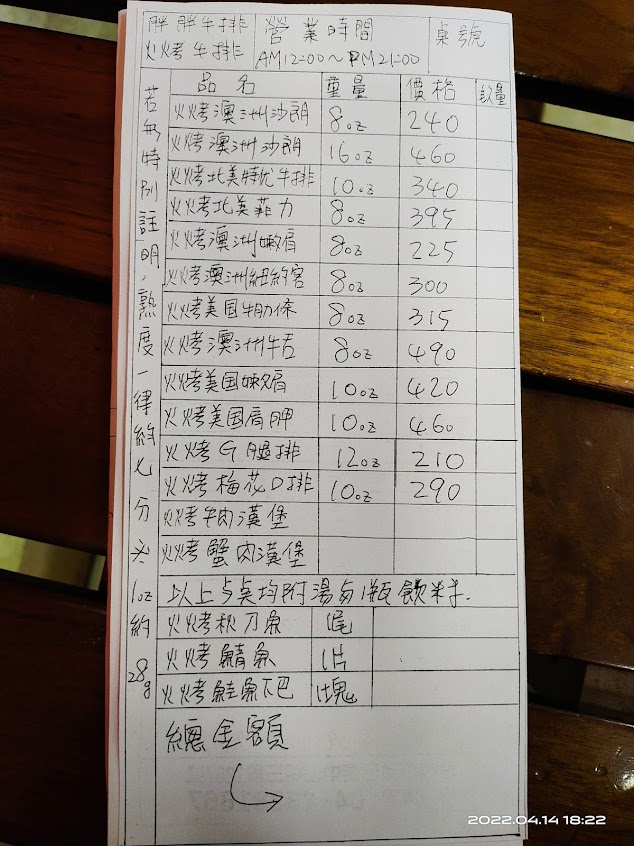 胖胖牛排
火烤牛排
營業時間
AM12:00~PM21:00
桌號
品名 重量 價格 数量
火烤澳洲沙朗 8oz 240
火烤澳洲沙朗 16oz 460
火烤北美特优牛排 10oz 340
火烤北美菲力 8oz 395
火烤澳洲嫩肩 8oz 225
火烤澳洲紐約客 8oz 300
火烤美国牛肋條 8oz 315
火烤澳洲牛舌 8oz 490
火烤美国嫩肩 10oz 420
火烤美国肩胛 10oz 460
火烤G腿排 12oz 210
火烤梅花D排 10oz 290
火烤牛肉漢堡
火烤蟹肉漢堡
以上均附湯 1瓶飲料.
火烤秋刀魚 1尾
火烤鯖魚 1片
火烤鮭魚下巴 1塊
總金額
若無特別註明,熟度一律約七分
1oz約28g
2022.04.14 18:22